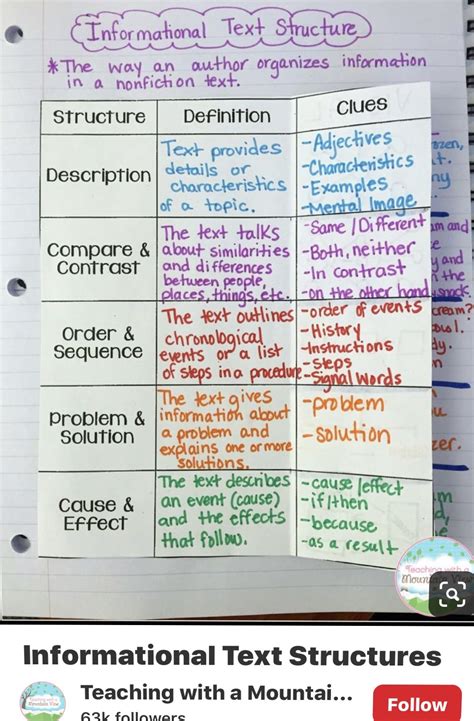 Informational Text Structure
*The way an author organizes information
in a nonfiction text.
Structure
Definition
Clues
Description
Text provides
details or
characteristics
of a topic.
-Adjectives
-Characteristics
-Examples
-Mental Image
Compare &
Contrast
The text talks
about similarities
and differences
between people,
places, things, etc.
-Same / Different
-Both, neither
-In contrast
-on the other hand
Order &
Sequence
The text outlines
chronological
events or a list
of steps in a procedure
-order of events
-History
-Instructions
-Steps
-Signal Words
Problem &
Solution
The text gives
information about
a problem and
explains one or more
solutions.
-problem
-solution
Cause &
Effect
The text describes
an event (cause)
and the effects
that follow.
-cause/effect
-if/then
-because
-as a result
Teaching with a
Mountain View
Informational Text Structures
Teaching with a Mountai...
63k followers
Follow